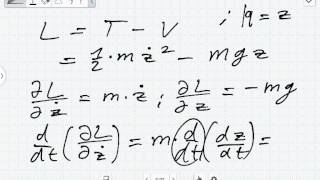 L = T - V ; q = z
= 1/2 · m ż² - mgz
∂L/∂ż = m · ż ; ∂L/∂z = -mg
d/dt (∂L/∂ż) = m · d/dt (dz/dt) =